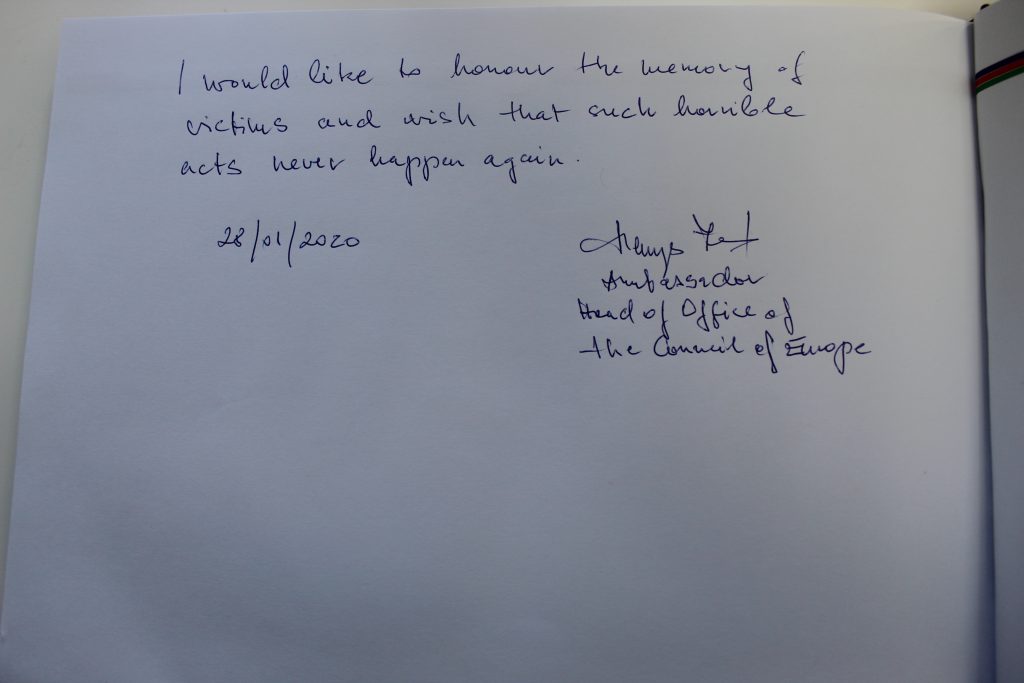 I would like to honour the memory of
victims and wish that such horrible
acts never happen again.
28/01/2020
Ambassador
Head of Office of
the Council of Europe